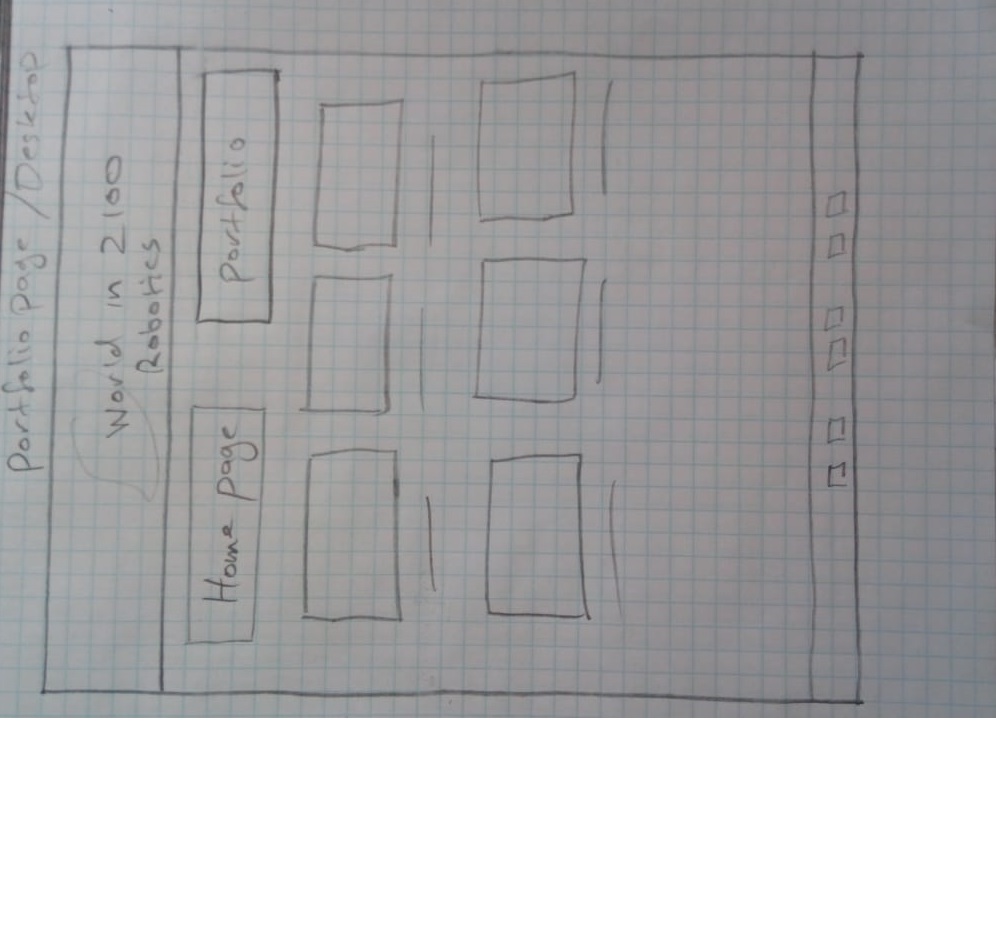 Portfolio page / Desktop
World in 2100
Robotics
Home page
Portfolio